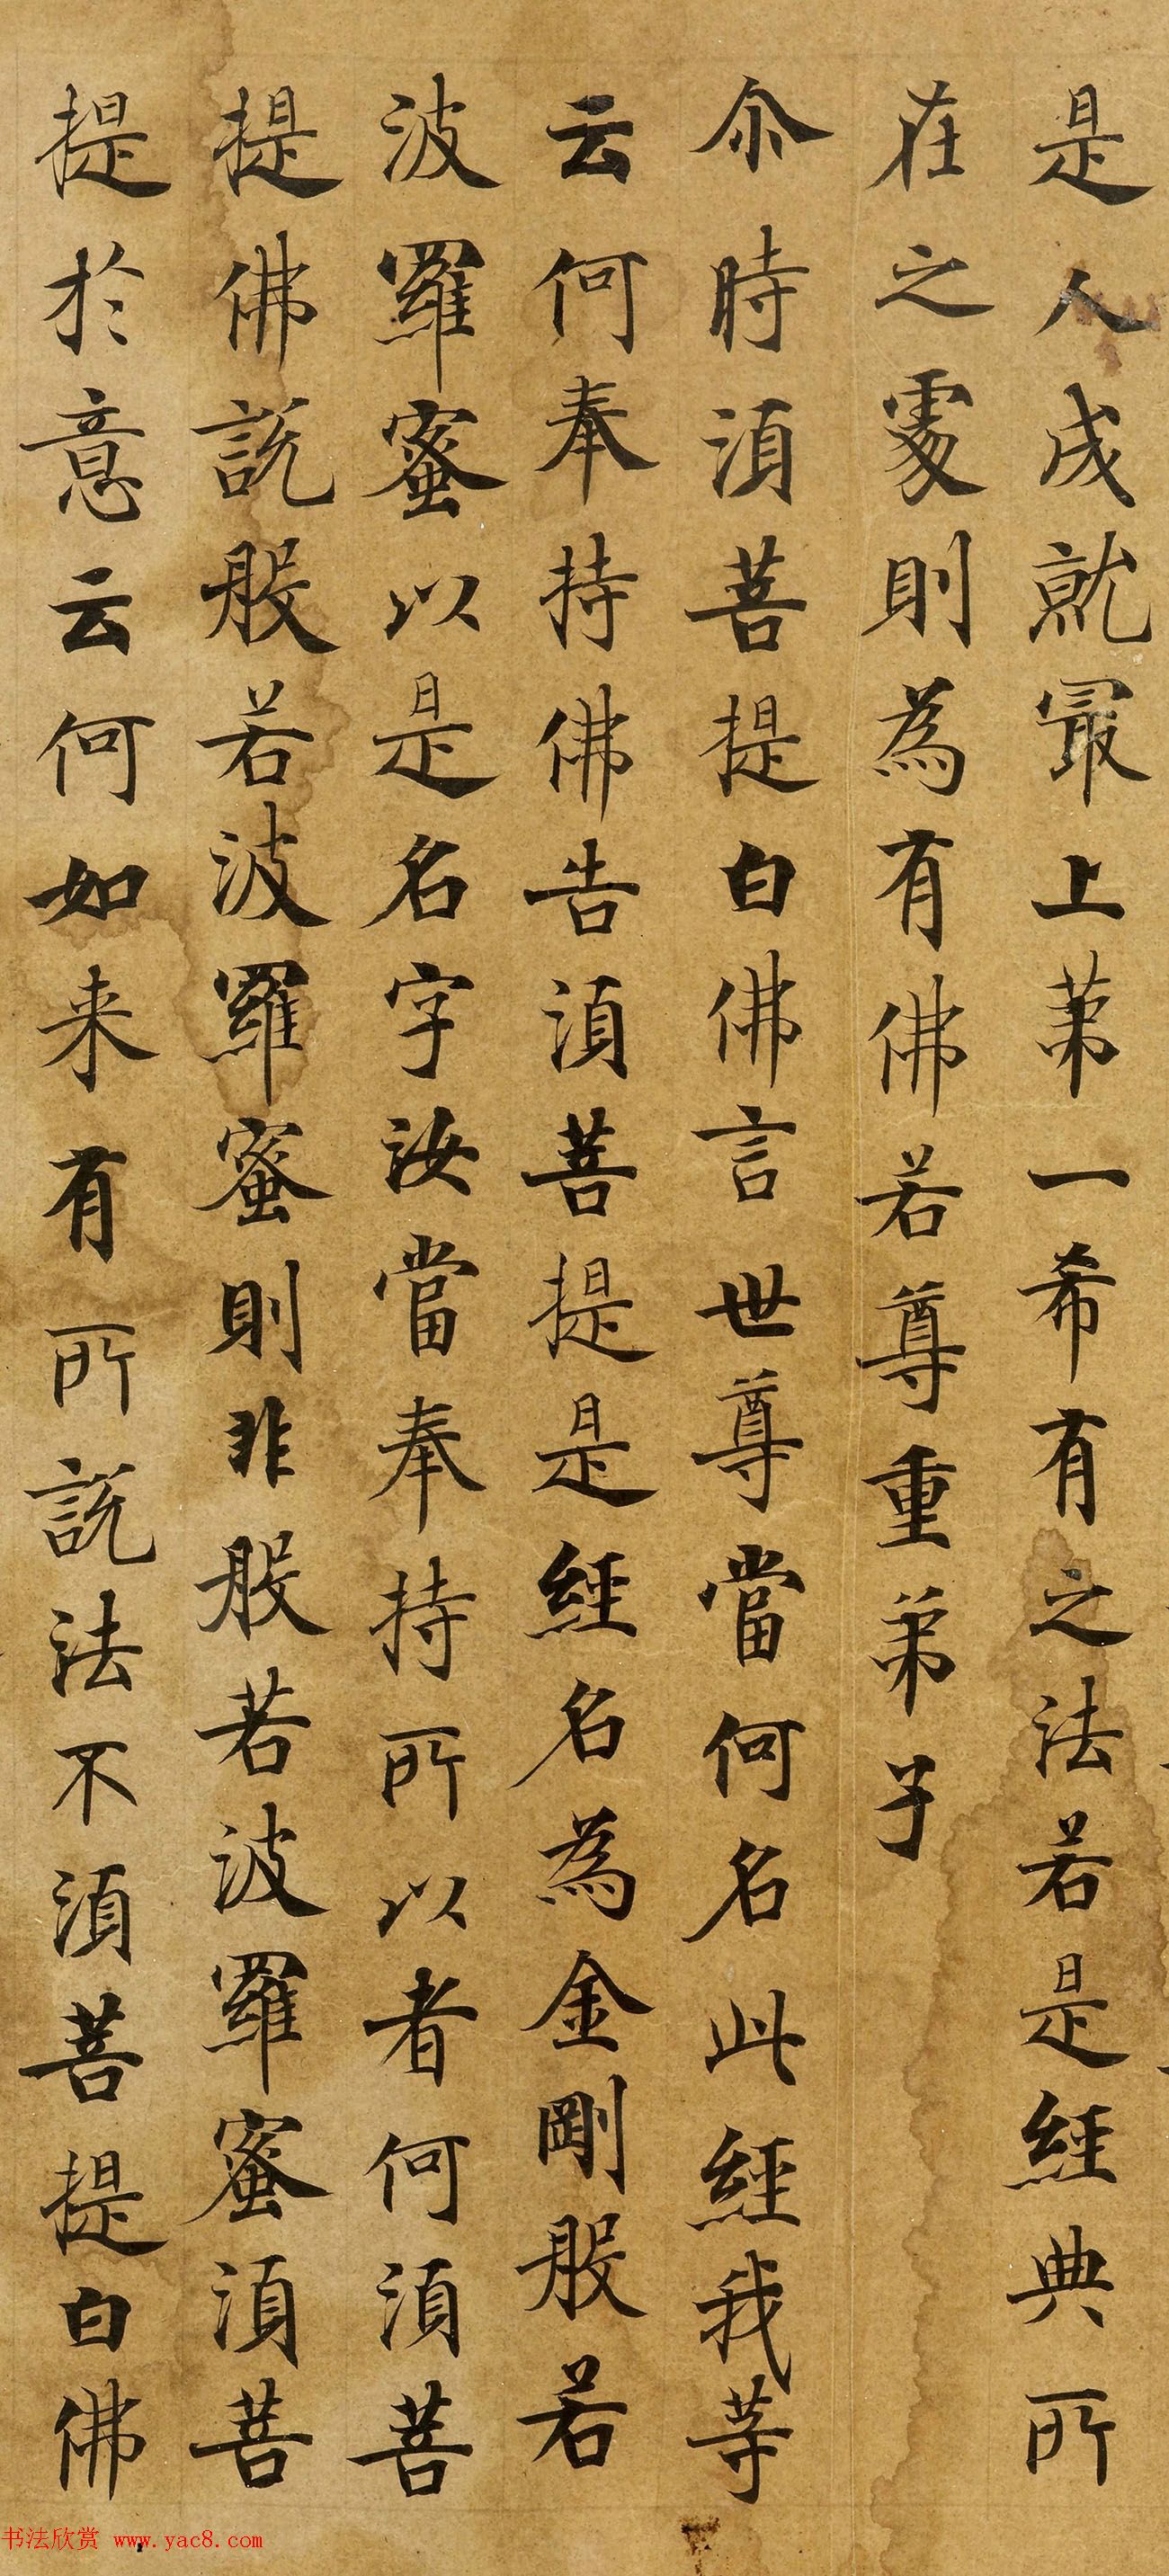 是人成就冣上苐一希有之法若是經典所
在之處則為有佛若尊重弟子
尒時湏菩提白佛言世尊當何名此經我等
云何奉持佛告湏菩提是經名為金剛般若
波羅蜜以是名字汝當奉持所以者何湏菩
提佛説般若波羅蜜則非般若波羅蜜湏菩
提於意云何如来有所説法不湏菩提白佛
书法欣赏 www.yac8.com